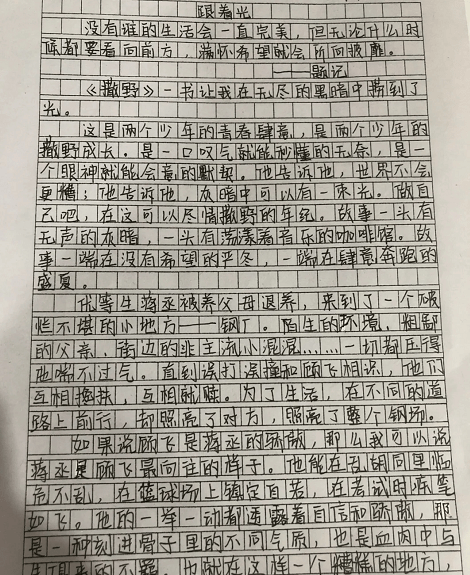 跟着光
没有谁的生活会一直完美，但无论什么时
候都要看向前方，满怀希望就会所向披靡。
——题记
《撒野》一书让我在无尽的黑暗中捞到了
光。
这是两个少年的青春肆意，是两个少年的
撒野成长。是一口叹气就能秒懂的无奈，是一
个眼神就能会意的默契。他告诉他，世界不会
更糟；他告诉他，灰暗中可以有一束光。做自
己吧，在这可以尽情撒野的年纪。故事一头有
无声的灰暗，一头有荡漾着音乐的咖啡馆。故
事一端在没有希望的严冬，一端在肆意奔跑的
盛夏。
优等生蒋丞被养父母退养，来到了一个破
烂不堪的小地方——钢厂。陌生的环境，粗鄙
的父亲，街边的非主流小混混……一切都压得
他喘不过气。直到误打误撞和顾飞相识，他们
互相搀扶，互相救赎。为了生活，在不同的道
路上前行，却照亮了对方，照亮了整个钢场。
如果说顾飞是蒋丞的骄傲，那么我可以说
蒋丞是顾飞最向往的样子。他能在乱胡同里临
危不乱，在篮球场上镇定自若，在考试时陈笔
如飞。他的一举一动都透露着自信和骄傲，那
是一种刻进骨子里的不同气质，也是血肉中与
生俱来的不羁。也就在这样一个糟糕的地方，